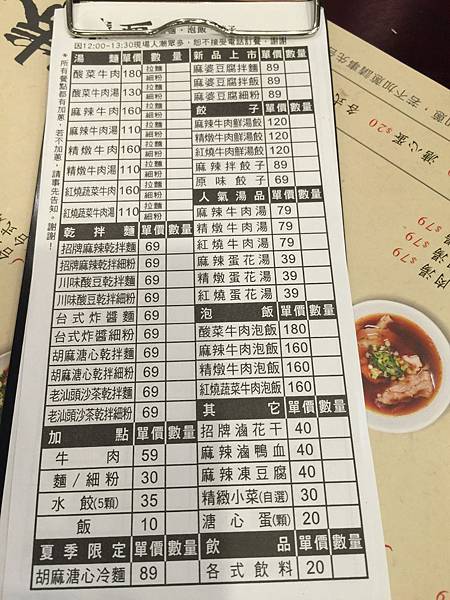 因12:00-13:30現場人潮眾多，恕不接受電話訂餐，謝謝
*所有餐點都有加蔥，若不加蔥，請事先告知。謝謝！
湯麵 單價 數量
酸菜牛肉 180 拉麵 細粉
酸菜牛肉湯 130 拉麵 細粉
麻辣牛肉 160 拉麵 細粉
麻辣牛肉湯 110 拉麵 細粉
精燉牛肉 160 拉麵 細粉
精燉牛肉湯 110 拉麵 細粉
紅燒蔬菜牛肉 160 拉麵 細粉
紅燒蔬菜牛肉湯 110 拉麵 細粉
乾拌麵 單價 數量
招牌麻辣乾拌麵 69
招牌麻辣乾拌細粉 69
川味酸豆乾拌麵 69
川味酸豆乾拌細粉 69
台式炸醬麵 69
台式炸醬細粉 69
胡麻溏心乾拌麵 69
胡麻溏心乾拌細粉 69
老汕頭沙茶乾拌麵 69
老汕頭沙茶乾拌細粉 69
加點 單價 數量
牛肉 59
麵/細粉 30
水餃(5顆) 35
飯 10
夏季限定 單價 數量
胡麻溏心冷麵 89
新品上市 單價 數量
麻婆豆腐拌麵 89
麻婆豆腐拌飯 89
麻婆豆腐細粉 89
餃子 單價 數量
麻辣牛肉鮮湯餃 120
精燉牛肉鮮湯餃 120
紅燒牛肉鮮湯餃 120
麻辣拌餃子 89
原味餃子 69
人氣湯品 單價 數量
麻辣牛肉湯 79
精燉牛肉湯 79
紅燒牛肉湯 79
麻辣蛋花湯 39
精燉蛋花湯 39
紅燒蛋花湯 39
泡飯 單價 數量
酸菜牛肉泡飯 180
麻辣牛肉泡飯 160
精燉牛肉泡飯 160
紅燒蔬菜牛肉泡飯 160
其它 單價 數量
招牌滷花干 40
麻辣滷鴨血 40
麻辣凍豆腐 40
精緻小菜(自選) 30
溏心蛋(顆) 20
飲品 單價 數量
各式飲料 20
溏心蛋 $20
肉湯 $79
$79
$79